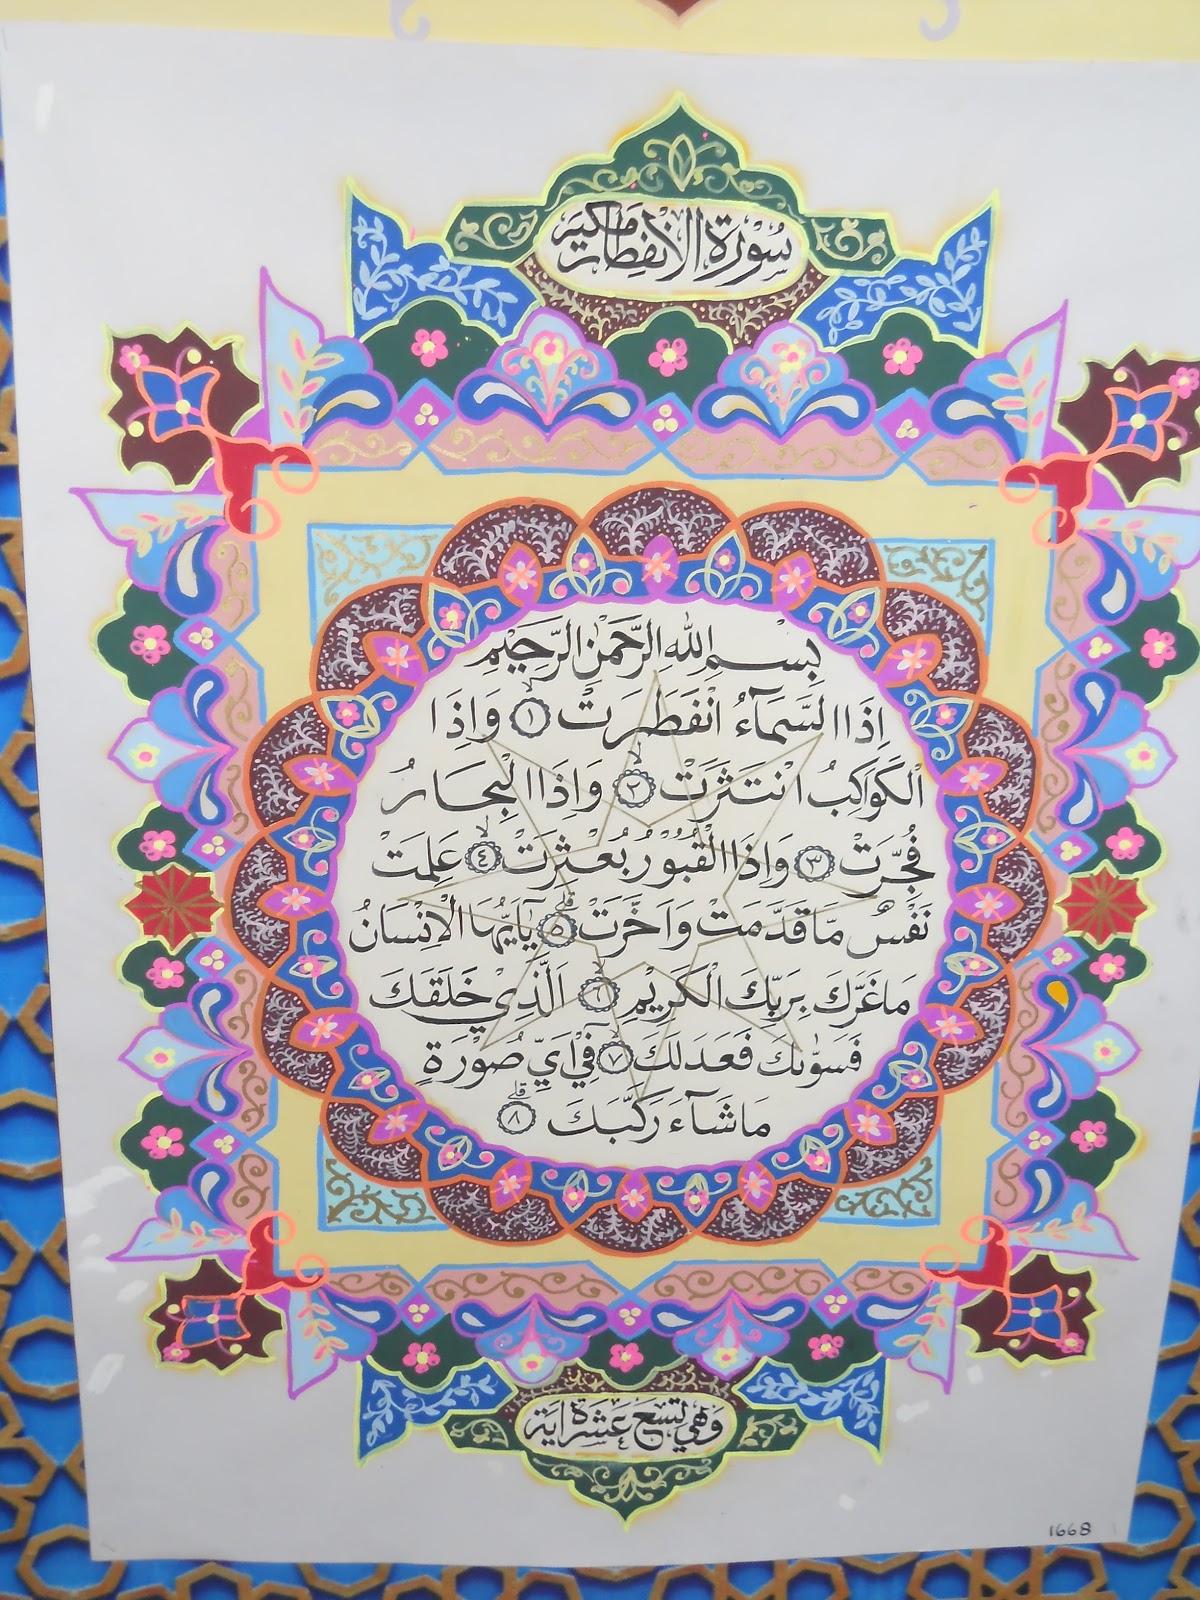 سُوْرَةُ الْاِنْفِطَارِ مَكِّيَّة
بِسْمِ اللهِ الرَّحْمٰنِ الرَّحِيْمِ
اِذَا السَّمَآءُ انْفَطَرَتْۙ ١ وَاِذَا
الْكَوَاكِبُ انْتَثَرَتْۙ ٢ وَاِذَا الْبِحَارُ
فُجِّرَتْ ٣ وَاِذَا الْقُبُوْرُ بُعْثِرَتْۙ ٤ عَلِمَتْ
نَفْسٌ مَّا قَدَّمَتْ وَاَخَّرَتْۗ ٥ يٰٓاَيُّهَا الْاِنْسَانُ
مَا غَرَّكَ بِرَبِّكَ الْكَرِيْمِۙ ٦ الَّذِيْ خَلَقَكَ
فَسَوّٰىكَ فَعَدَلَكَۙ ٧ فِيْٓ اَيِّ صُوْرَةٍ
مَا شَآءَ رَكَّبَكَۗ ٨
وَهِيَ تِسْعَ عَشَرَةَ اٰيَة
1668